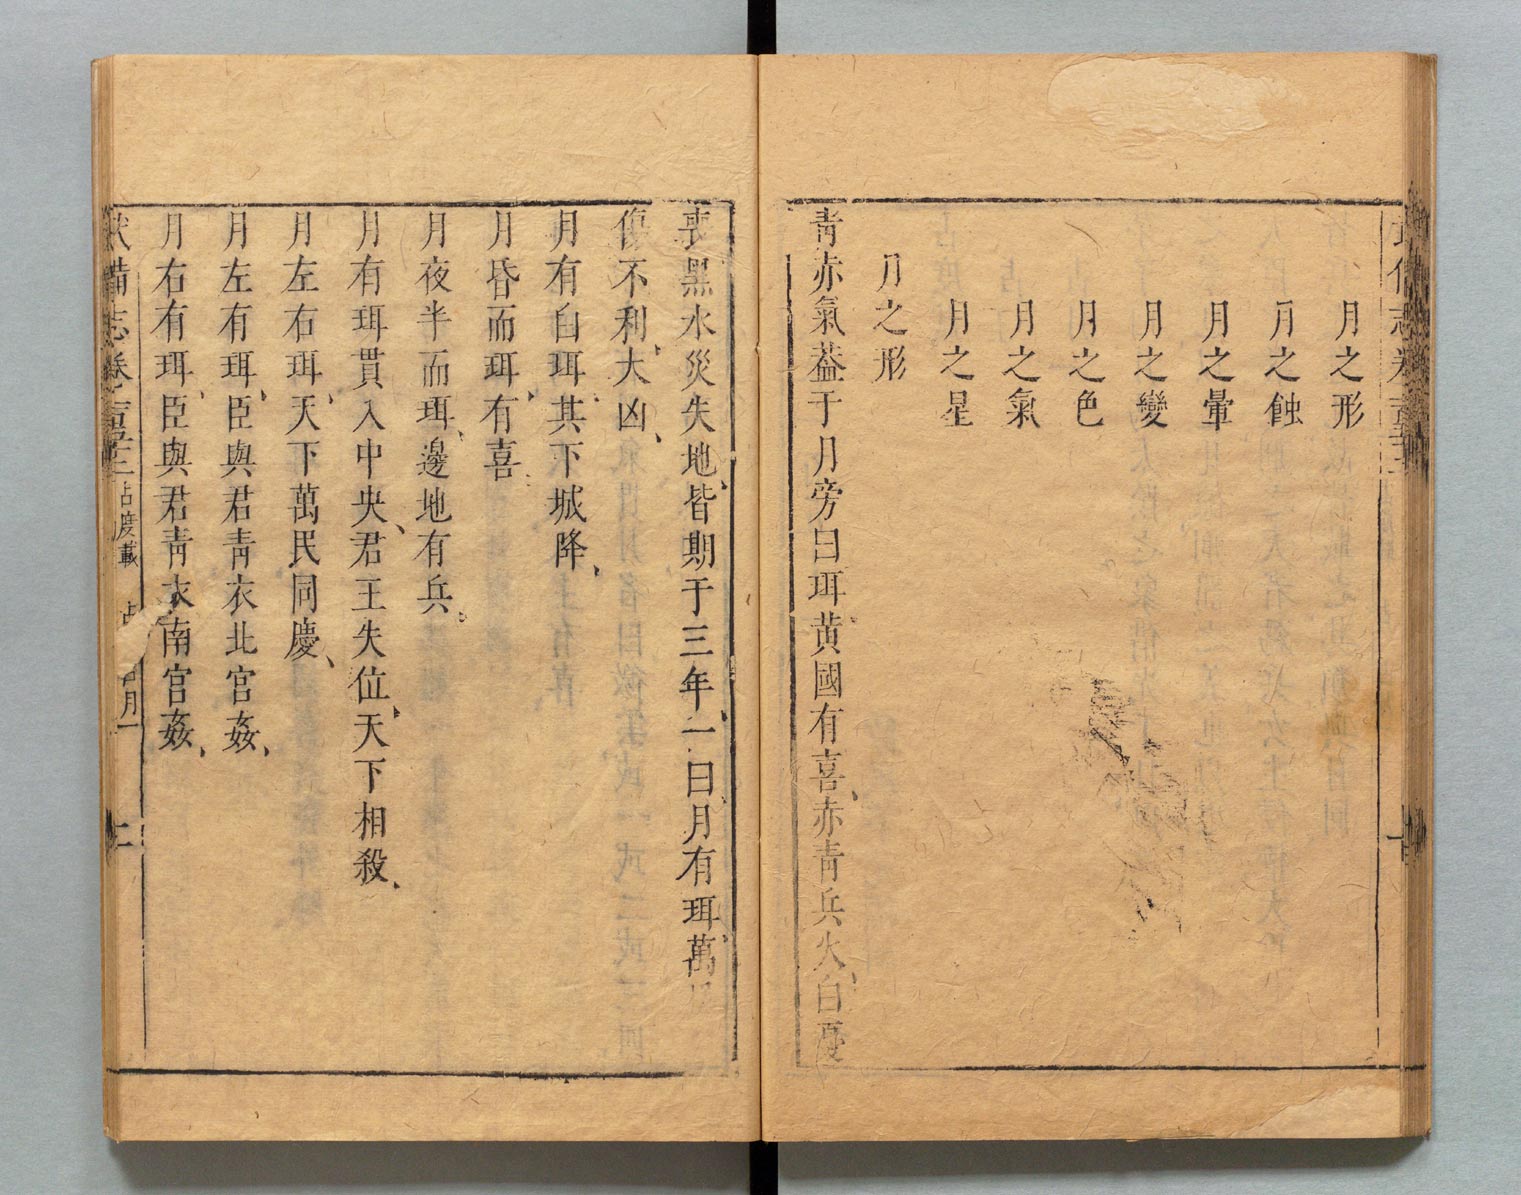 月之形
月之蝕
月之暈
月之變
月之色
月之氣
月之星
月之形
靑赤氣葢于月旁曰珥黃國有喜赤靑兵火白憂
喪黑水災失地皆期于三年一曰月有珥萬
傷不利大凶
月有白珥其下城降
月昏而珥有喜
月夜半而珥邊地有兵
月有珥貫入中央君王失位天下相殺
月左右珥天下萬民同慶
月左有珥臣與君靑衣北宮姦
月右有珥臣與君靑衣南宮姦
備志卷 占度載 占 月一 二